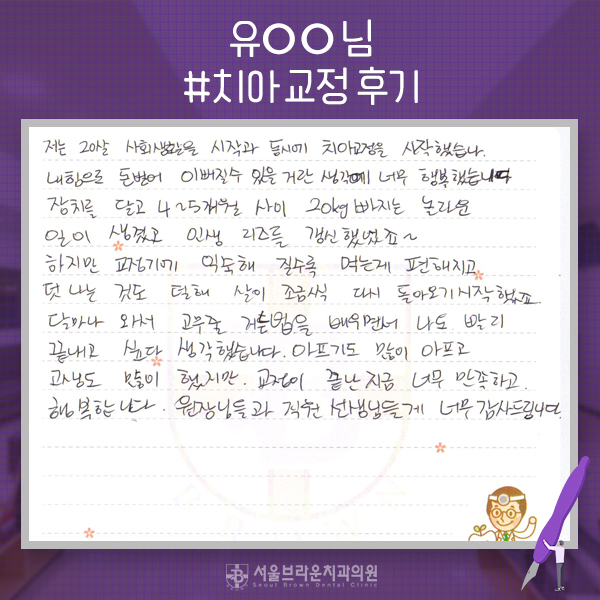 유○○님
#치아교정 후기
저는 20살 사회생활을 시작과 동시에 치아교정을 시작했습니다.
내힘으로 돈벌어 이뻐질수 있을거란 생각에 너무 행복했습니다
장치를 달고 4~5개월 사이 20kg 빠지는 놀라운
일이 생겼고 인생 리즈를 갱신했었죠~
하지만 교정기에 익숙해 질수록 먹는게 편해지고
덧나는 것도 덜해 살이 조금씩 다시 돌아오기 시작했죠
달마다 와서 고무줄 거는법을 배우면서 나도 빨리
끝내고 싶다 생각했습니다. 아프기도 많이 아프고
고생도 많이 했지만. 교정이 끝난 지금 너무 만족하고.
행복합니다. 원장님들과 직원 선생님들게 너무 감사드립니다.
서울브라운치과의원
Seoul Brown Dental Clinic